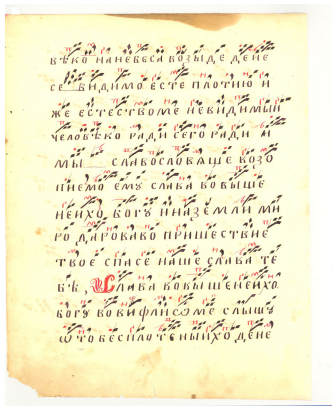 вѣко нанебеса возыде дене
се видимо есте плотию и
же естествоме невидимыи
человѣко ради сего ради и
мы славословяще возо
пиемо ему слава вовыше
неихо богу иназемли ми
ро дароваво пришествие
твое спасе наше слава те
бѣ, Слава вовышенеихо
богу вовифлисѡме слышу
ѿ тобесплотеныихо дене